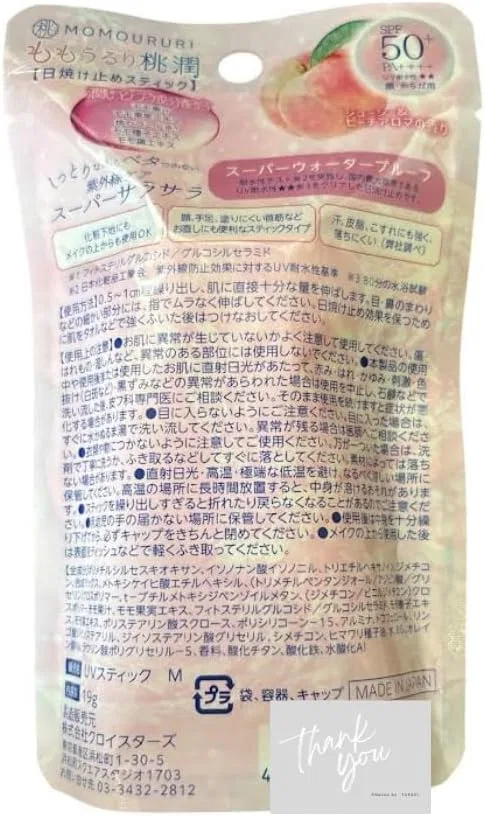 桃 MOMOURURI
ももうるり桃潤
【日焼け止めスティック】
SPF
50+
PA++++
UV耐水性★★
顔・からだ用
ピーチアロマの香り
しっとりなのにベタつかない
スーパーサラサラ
スーパーウォータープルーフ
化粧下地にも
メイクの上からも使用OK
顔、手足、塗りにくい首筋など
お直しにも便利なスティックタイプ
汗、皮脂、こすれにも強く、
落ちにくい（弊社調べ）
※1 フィトステリルグルコシド／グルコシルセラミド
※2 日本化粧品工業会、紫外線防止効果に対するUV耐水性基準 ※3 80分の水浴試験
【使用方法】0.5～1cm程繰り出し、肌に直接十分な量を伸ばします。目・鼻のまわり
などの細かい部分には、指でムラなく伸ばしてください。日焼け止め効果を保つため
に肌をタオルなどで軽くふいた後はつけなおしてください。
【使用上の注意】●お肌に異常が生じていないかよく注意して使用してください。傷・
はれもの・湿しんなど、異常のある部位には使用しないでください。●本製品の使用
中や使用後または使用したお肌に直射日光があたって、赤み・はれ・かゆみ・刺激・色
抜け（白斑など）・黒ずみなどの異常があらわれた場合は使用を中止し、石鹸などで
洗い流した後、皮フ科専門医にご相談ください。そのまま使用を続けますと症状が悪
化する場合があります。●目に入らないようにご注意ください。目に入った場合は、
すぐに水かぬるま湯で洗い流してください。異常が残る場合は眼科へご相談ください。
●衣類や物につかないように注意してご使用ください。万が一ついた場合は、洗
剤で丁寧に洗うか、ふき取るなどしてすぐに落としてください。素材によっては落ち
ない場合があります。●直射日光・高温・極端な低温を避け、なるべく涼しい場所に
保管してください。高温の場所に長時間放置すると、中身が溶けるおそれがありま
す。●スティックを繰り出しすぎると折れたり戻らなくなることがあるのでご注意くだ
さい。●乳幼児の手の届かない場所に保管してください。●使用後は中身を十分繰
り下げてから、必ずキャップをきちんと閉めてください。●メイクの上から使用した後
は表面をティッシュなどで軽くふき取ってください。
【全成分】ポリメチルシルセスキオキサン、イソノナン酸イソノニル、トリエチルヘキサノイン、
メトキシケイヒ酸エチルヘキシル、(トリメチルペンタンジオール/アジピン酸/グリ
セリン)クロスポリマー、t-ブチルメトキシジベンゾイルメタン、
モモ果実エキス、フィトステリルグルコシド/グルコシルセラミド、モモ種子エキ
ス、ポリステアリン酸スクロース、ポリシリコーン-15、アルミナ、
ジイソステアリン酸グリセリル、シメチコン、ヒマワリ種子油、水、
ラウリン酸ポリグリセリル-5、香料、酸化チタン、酸化鉄、水酸化Al
販売名 UVスティック M
内容量 19g
製造販売元
株式会社クロイスターズ
東京都港区浜松町1-30-5
浜松町スクエアスタジオ1703
お問合せ 03-3432-2812
プラ 袋、容器、キャップ
MADE IN JAPAN
4
thank
you